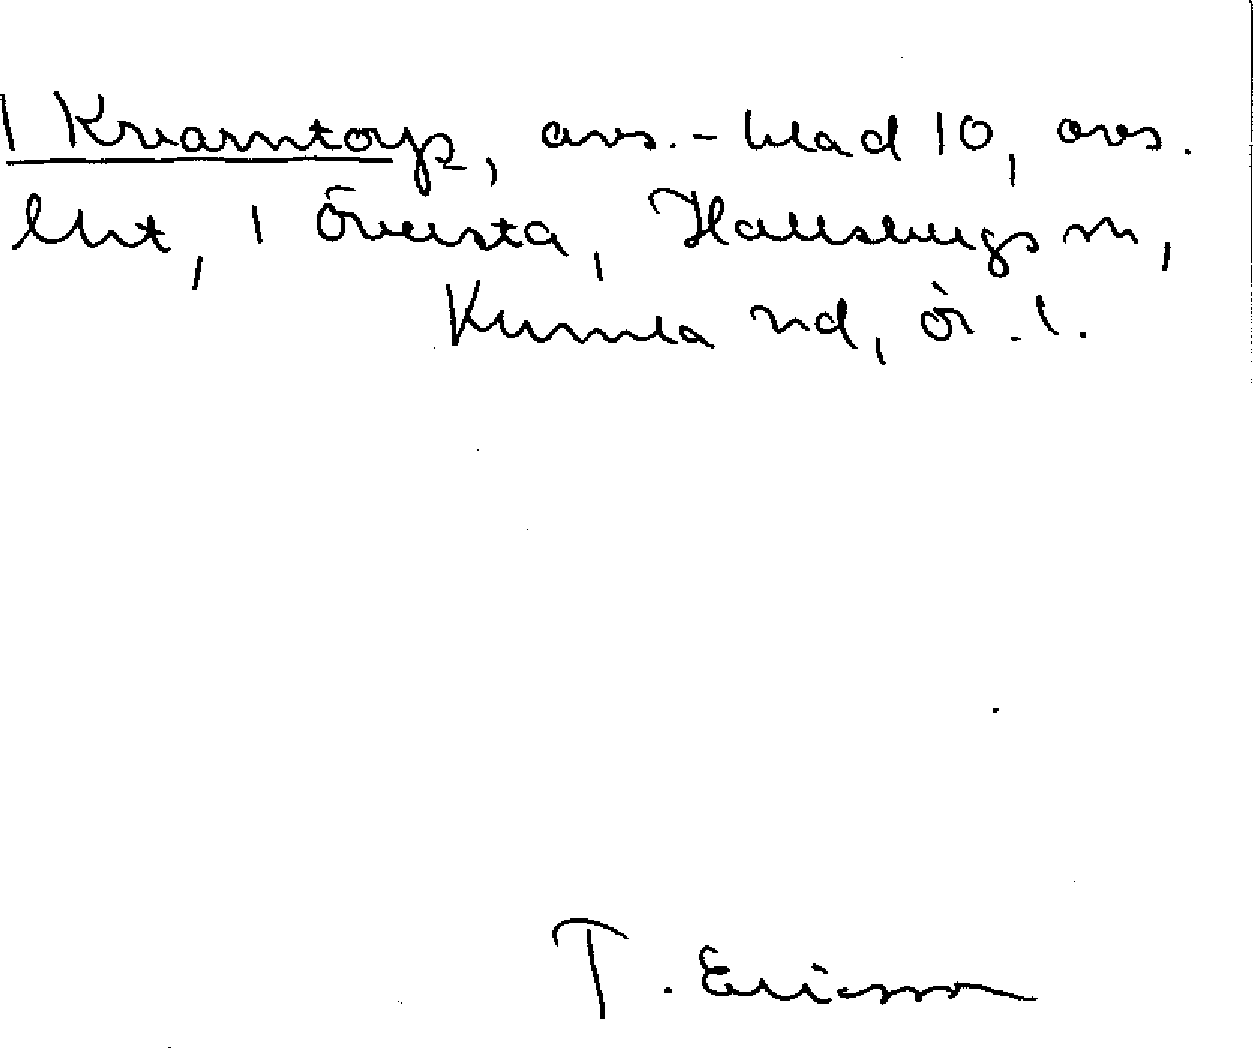 1 Kvarntorp, avs.-blad 10, avs.
lht, 1 Öveersta, Hallsbergs sn,
Kumla hd, Ör. l.
T. Ericsson